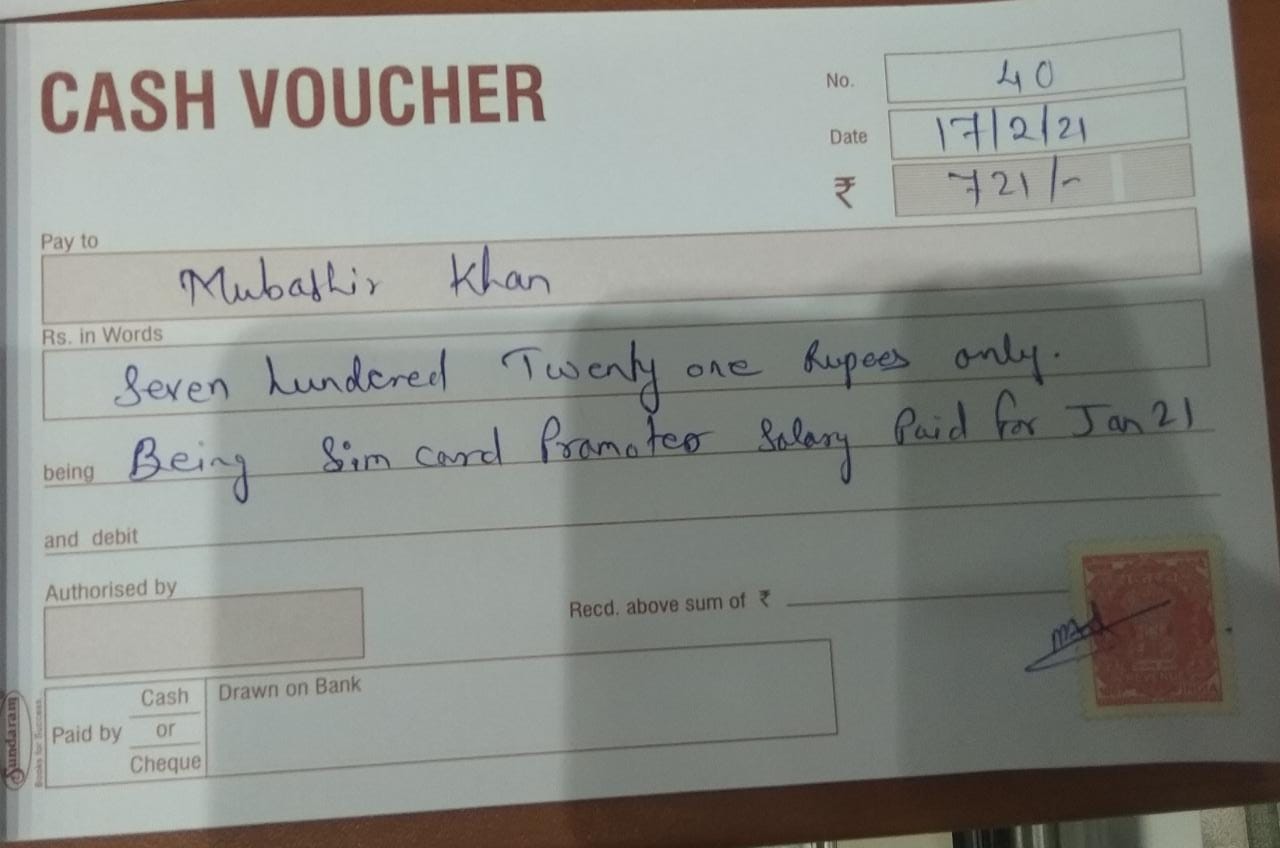 CASH VOUCHER
No. 40
Date 17/2/21
₹ 721/-
Pay to
Mubashir Khan
Rs. in Words
Seven hundered Twenty one Rupees only.
being Being Sim card Pramoter Salary Paid for Jan 21
and debit
Authorised by
Recd. above sum of ₹
Paid by Cash or Cheque
Drawn on Bank
Sundaram
Books for Success
REVENUE
INDIA